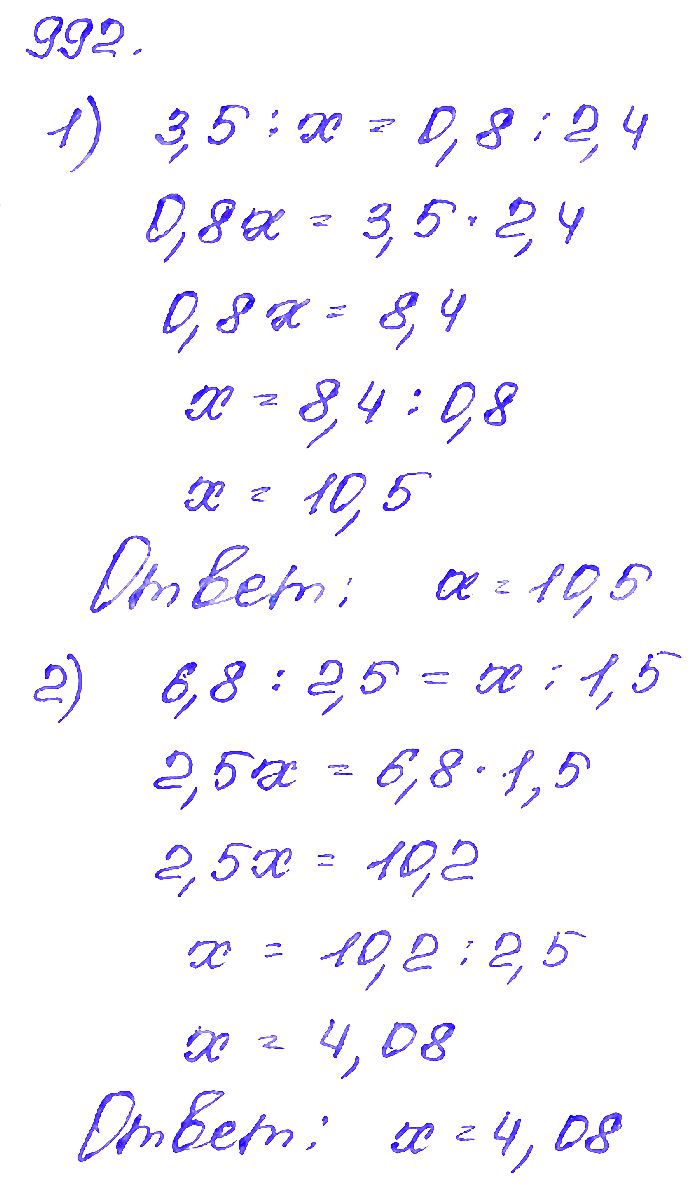 992.
1) 3,5 : x = 0,8 : 2,4
0,8x = 3,5 · 2,4
0,8x = 8,4
x = 8,4 : 0,8
x = 10,5
Ответ: x = 10,5
2) 6,8 : 2,5 = x : 1,5
2,5x = 6,8 · 1,5
2,5x = 10,2
x = 10,2 : 2,5
x = 4,08
Ответ: x = 4,08